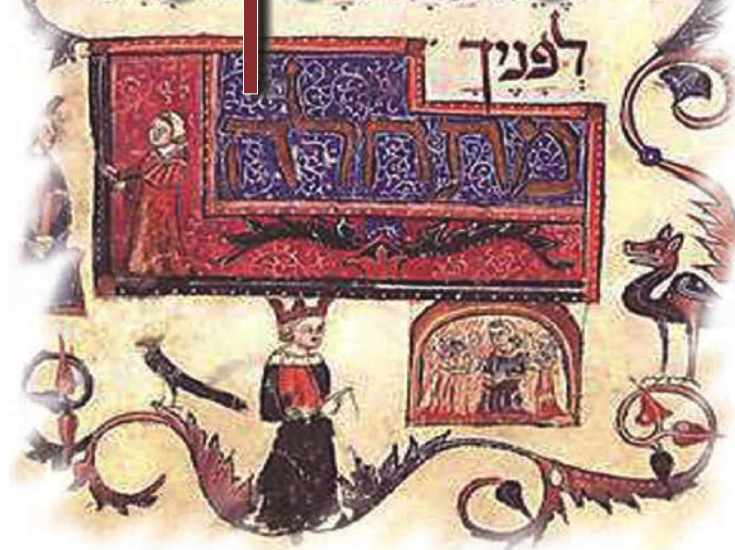 לפניך
מתחלה